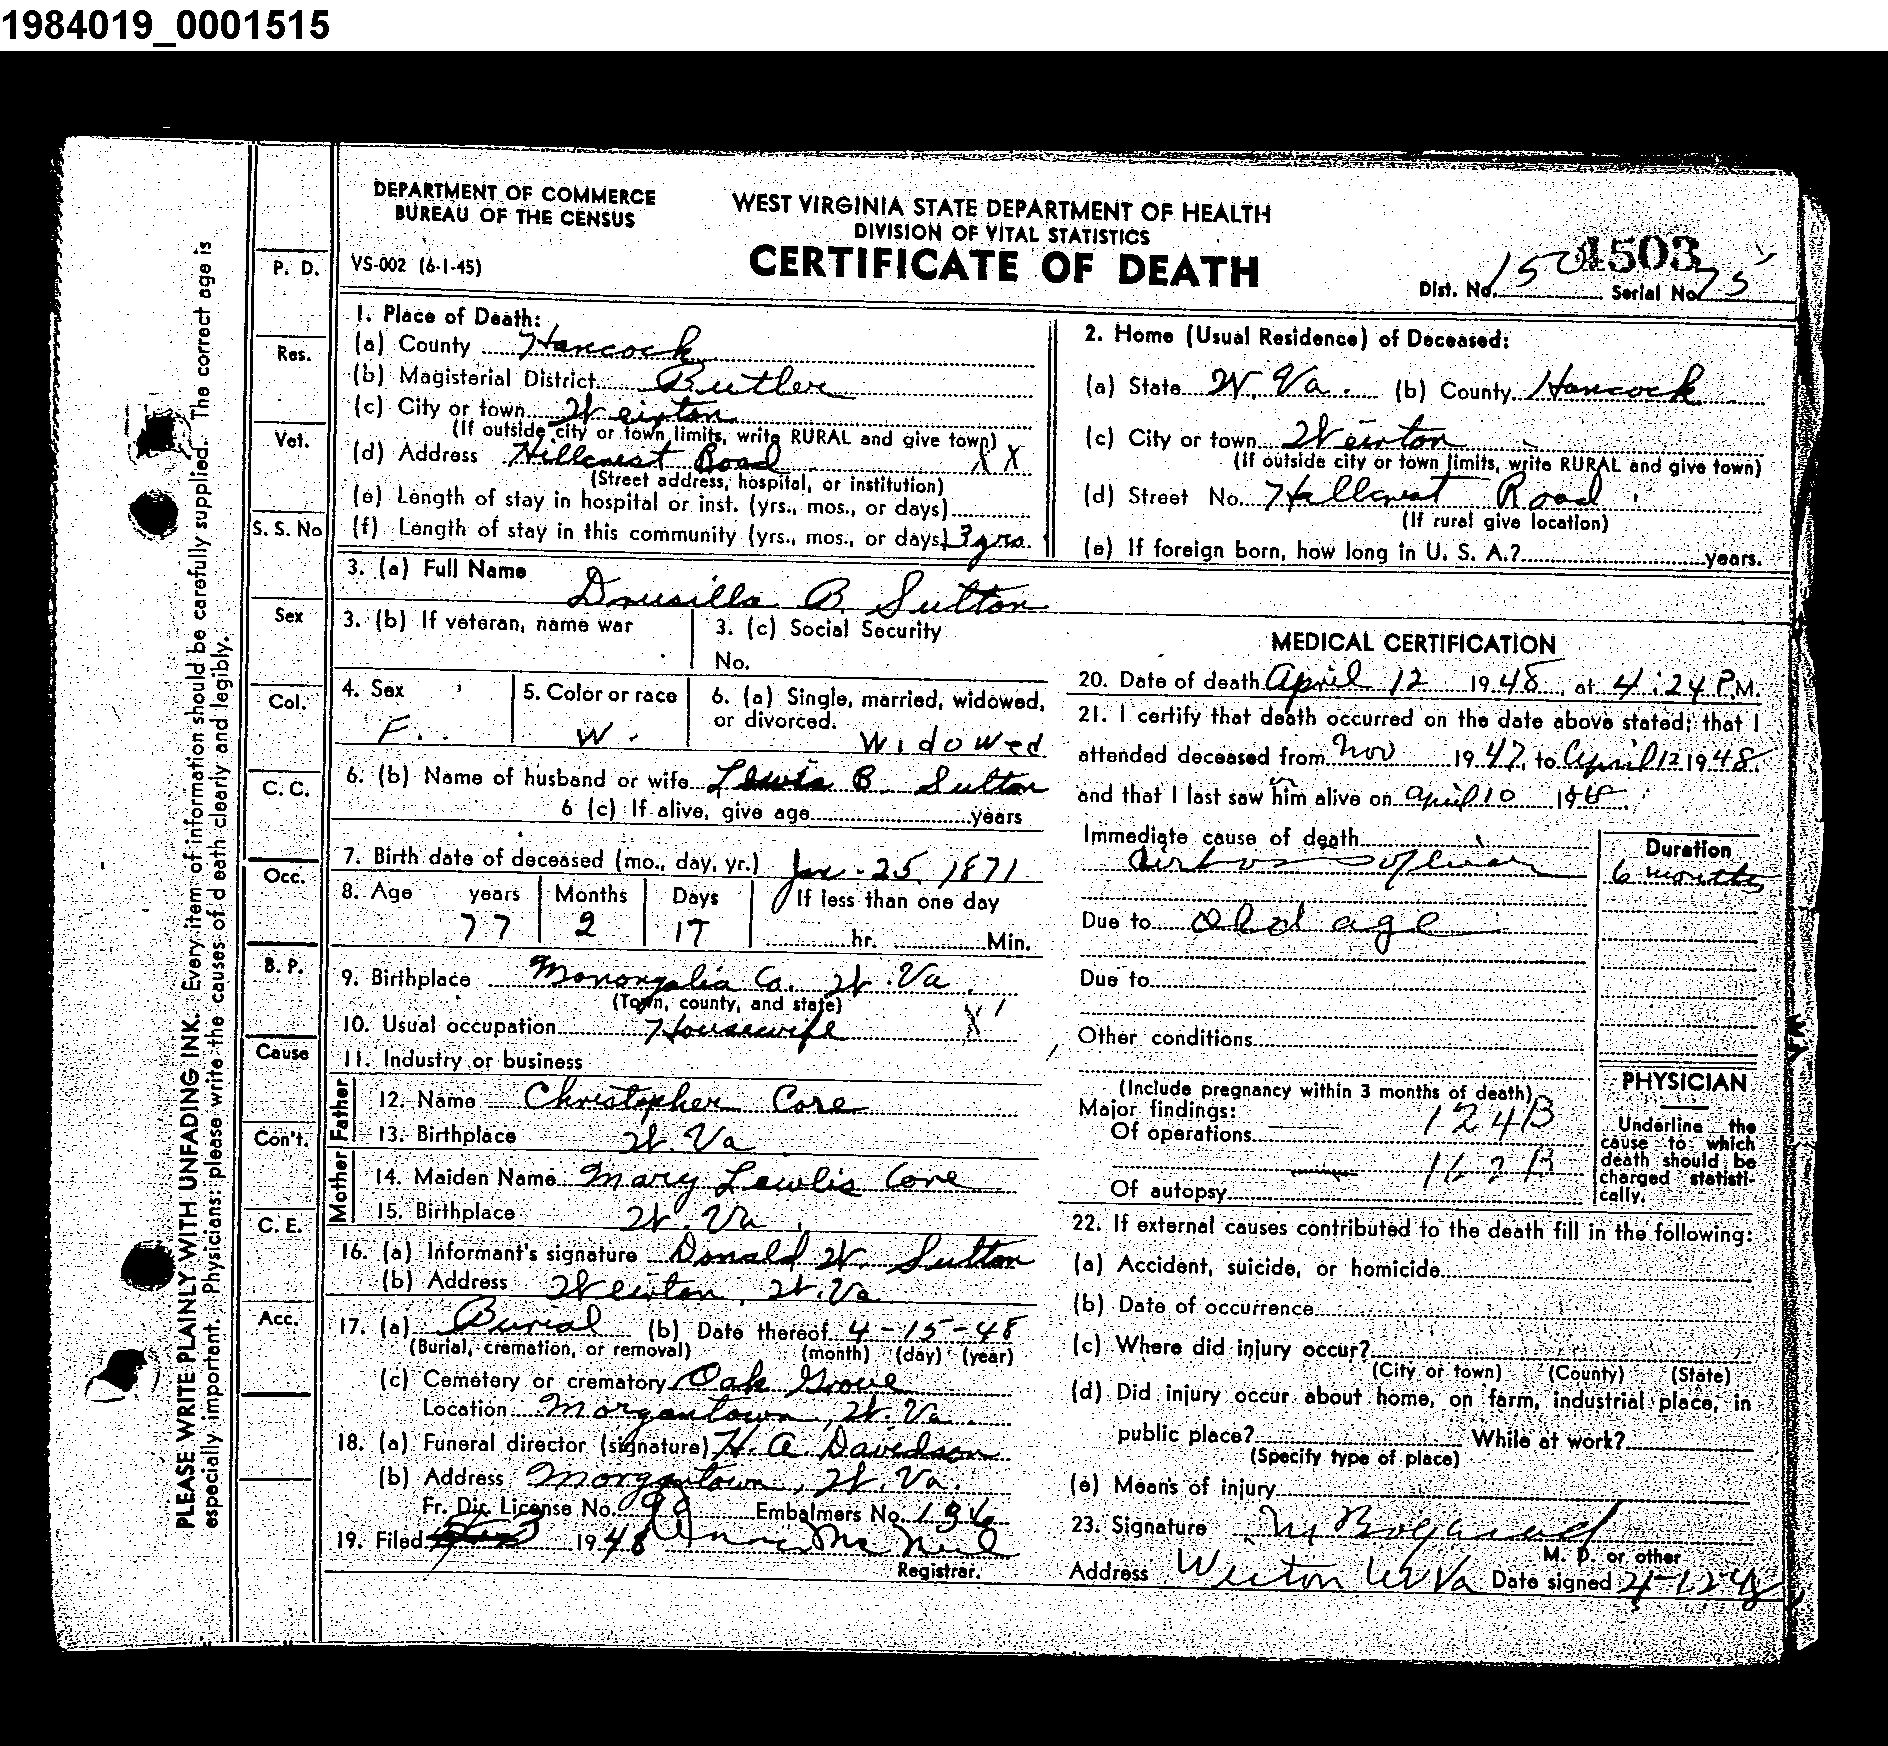 1984019_0001515
DEPARTMENT OF COMMERCE
BUREAU OF THE CENSUS
WEST VIRGINIA STATE DEPARTMENT OF HEALTH
DIVISION OF VITAL STATISTICS
VS-002 (6-1-45)
CERTIFICATE OF DEATH
4503
Dist. No. 150 Serial No. 75
1. Place of Death:
(a) County Hancock
(b) Magisterial District Butler
(c) City or town Weirton
(If outside city or town limits, write RURAL and give town)
(d) Address Hillcrest Road XX
(Street address, hospital, or institution)
(e) Length of stay in hospital or inst. (yrs., mos., or days)
(f) Length of stay in this community (yrs., mos., or days) 3 yrs.
2. Home (Usual Residence) of Deceased:
(a) State W. Va. (b) County Hancock
(c) City or town Weirton
(If outside city or town limits, write RURAL and give town)
(d) Street No. Hillcrest Road
(If rural give location)
(e) If foreign born, how long in U. S. A.? years.
3. (a) Full Name Drusilla B. Sutton
3. (b) If veteran, name war
3. (c) Social Security
No.
4. Sex F.
5. Color or race W.
6. (a) Single, married, widowed,
or divorced. Widowed
6. (b) Name of husband or wife Lewis B. Sutton
6 (c) If alive, give age years
7. Birth date of deceased (mo., day, yr.) Jan. 25, 1871
8. Age years Months Days If less than one day
77 2 17 hr. Min.
9. Birthplace Monongalia Co. W. Va.
(Town, county, and state)
10. Usual occupation Housewife X
11. Industry or business
Father
12. Name Christopher Core
13. Birthplace W. Va
Mother
14. Maiden Name Mary Lewlis Core
15. Birthplace W. Va.
16. (a) Informant's signature Donald W. Sutton
(b) Address Weirton, W. Va
17. (a) Burial (b) Date thereof 4-15-48
(Burial, cremation, or removal) (month) (day) (year)
(c) Cemetery or crematory Oak Grove
Location Morgantown, W. Va.
18. (a) Funeral director (signature) H. A. Davidson
(b) Address Morgantown, W. Va.
Fr. Dir. License No. Embalmers No. 136
19. Filed 1948 Mc Neil
Registrar.
MEDICAL CERTIFICATION
20. Date of death April 12 1948, at 4:24 P.M.
21. I certify that death occurred on the date above stated; that I
attended deceased from Nov 1947, to April 12 1948.
and that I last saw him alive on April 10 1948.
Immediate cause of death
Duration
6 months
Due to old age
Due to
Other conditions
(Include pregnancy within 3 months of death)
Major findings:
Of operations 124B
162B
Of autopsy
PHYSICIAN
Underline the
cause to which
death should be
charged statisti-
cally.
22. If external causes contributed to the death fill in the following:
(a) Accident, suicide, or homicide
(b) Date of occurrence
(c) Where did injury occur?
(City or town) (County) (State)
(d) Did injury occur about home, on farm, industrial place, in
public place? While at work?
(Specify type of place)
(e) Means of injury
23. Signature
M. D. or other
Address Weirton W Va Date signed 4-12-48
P. D.
Res.
Vet.
S. S. No
Sex
Col.
C. C.
Occ.
B. P.
Cause
Con't.
C. E.
Acc.
PLEASE WRITE PLAINLY WITH UNFADING INK. Every item of information should be carefully supplied. The correct age is
especially important. Physicians: please write the causes of death clearly and legibly.